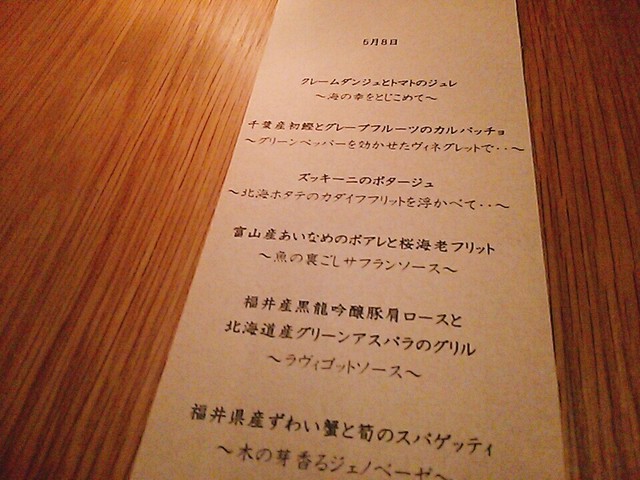 5月8日
クレームダンジュとトマトのジュレ
～海の幸をとじこめて～
千葉産初鰹とグレープフルーツのカルパッチョ
～グリーンペッパーを効かせたヴィネグレットで・・～
ズッキーニのポタージュ
～北海ホタテのカダイフフリットを浮かべて・・～
富山産あいなめのポアレと桜海老フリット
～魚の裏ごしサフランソース～
福井産黒龍吟醸豚肩ロースと
北海道産グリーンアスパラのグリル
～ラヴィゴットソース～
福井県産ずわい蟹と筍のスパゲッティ
～木の芽香るジェノベーゼ～